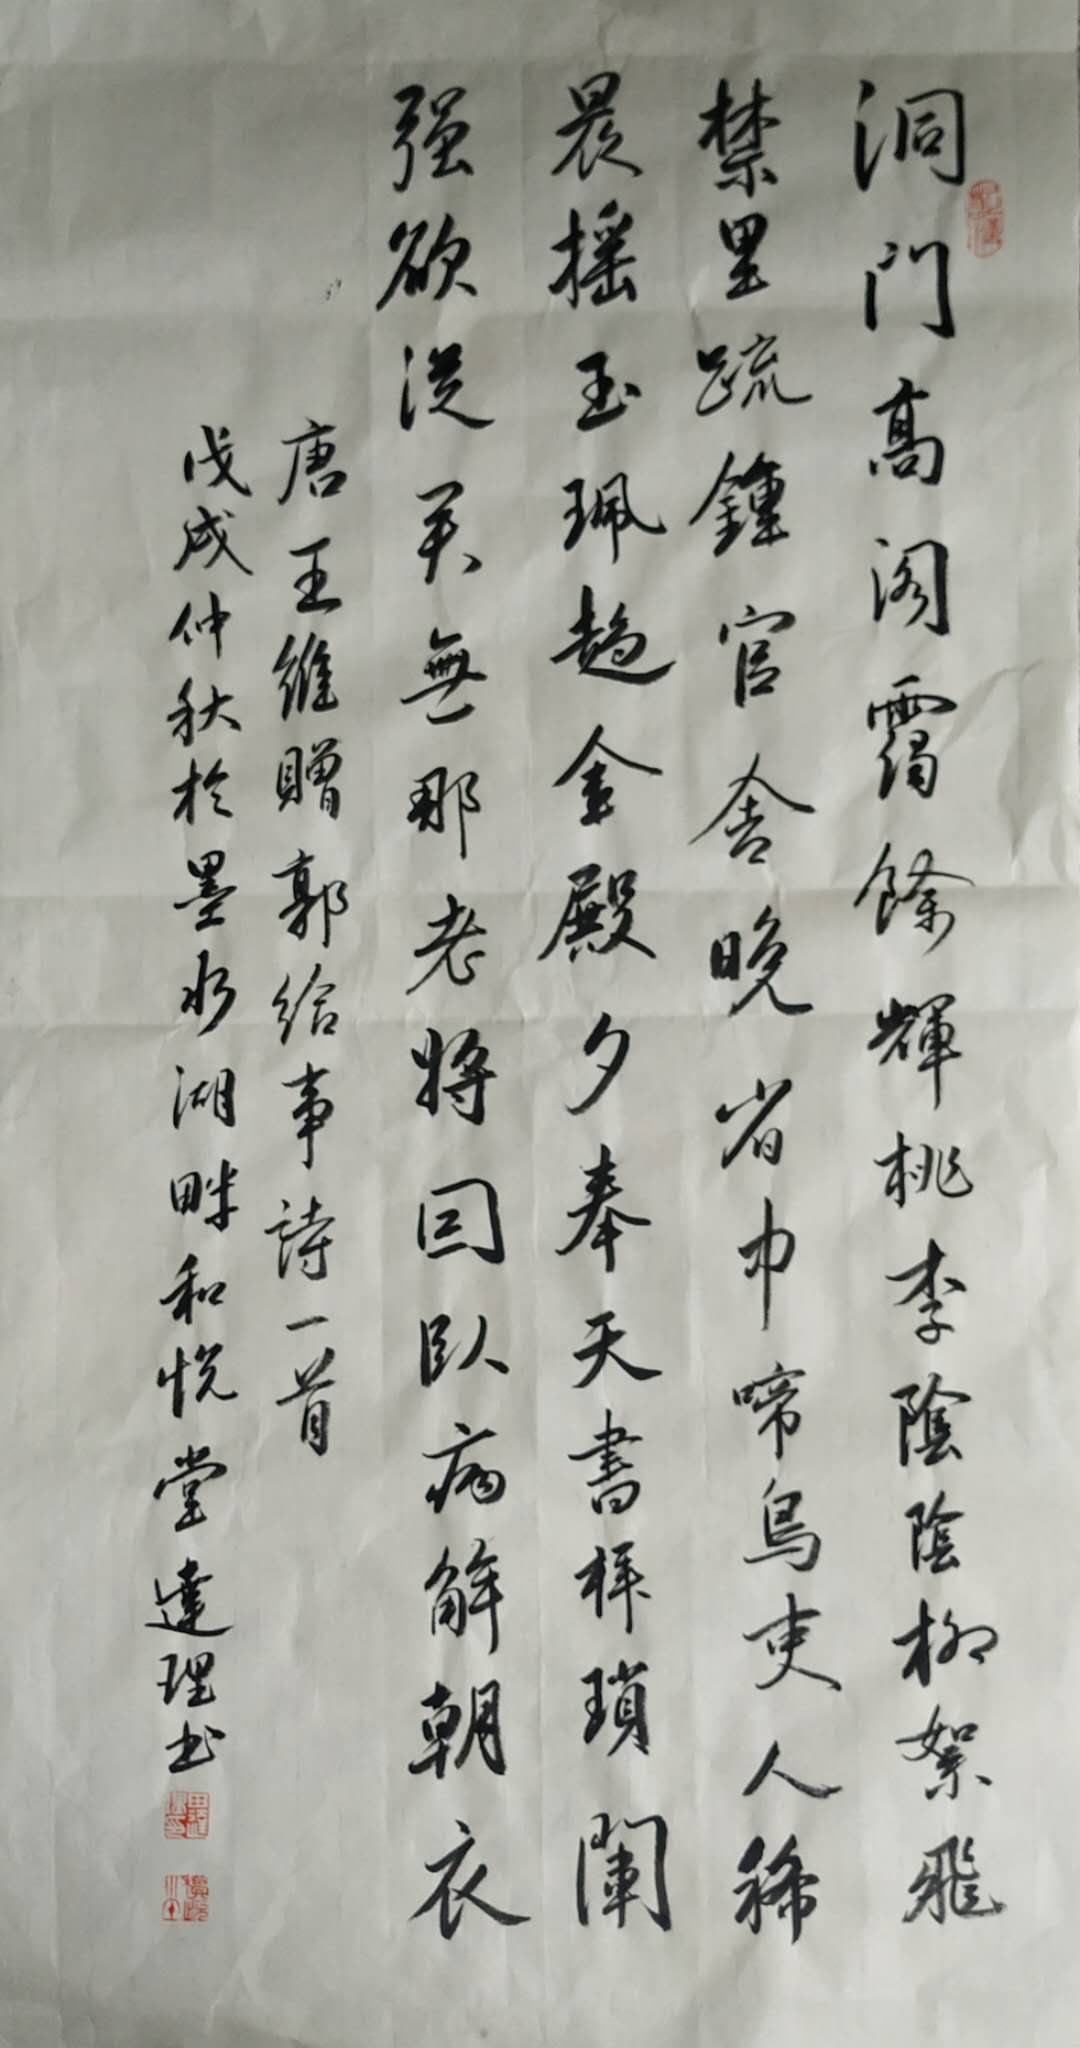 洞門高阁靄餘輝桃李陰陰柳絮飛
禁里疏鐘官舍晚省中啼鳥吏人稀
晨摇玉珮趋金殿夕奉天書拜瑣闈
强欲從君無那老將回臥病解朝衣
唐王維贈郭给事詩一首
戊戌仲秋於墨水湖畔和悦堂達理书